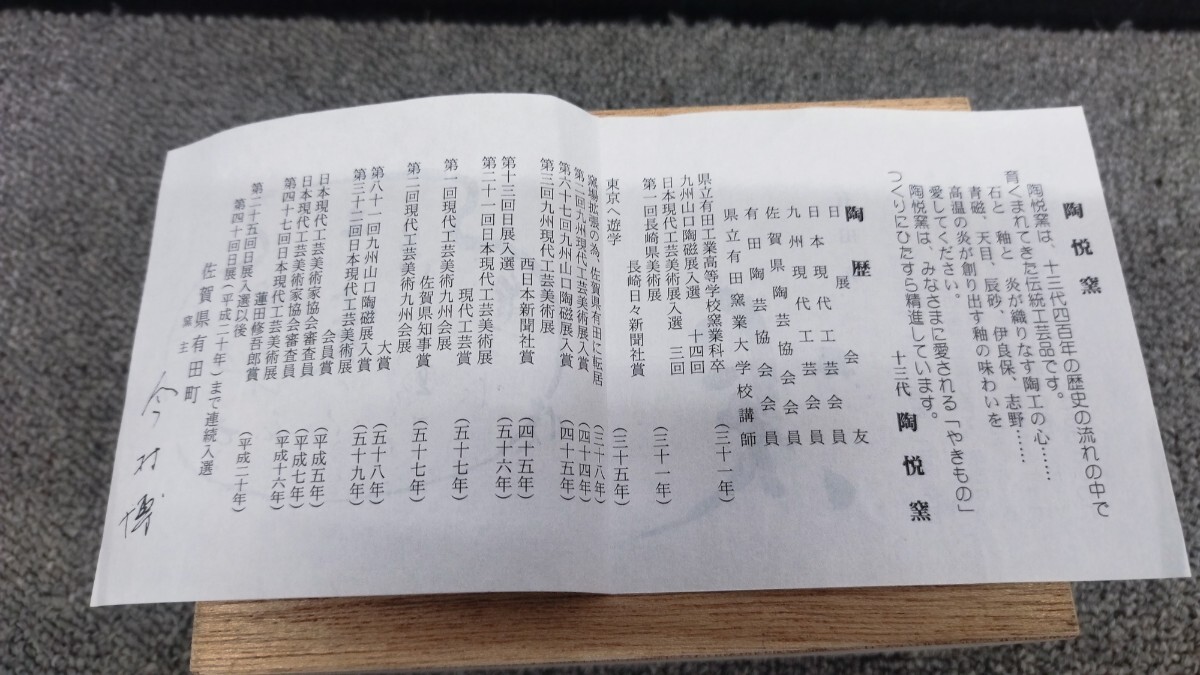 陶悦窯
陶悦窯は、十三代四百年の歴史の流れの中で
育くまれてきた伝統工芸品です。
石と 釉と 炎が織りなす陶工の心……
青磁、天目、辰砂、伊良保、志野……
高温の炎が創り出す釉の味わいを
愛してください。
陶悦窯は、みなさまに愛される「やきもの」
つくりにひたすら精進しています。
十三代 陶悦窯
陶歴
日展会友
日本現代工芸会員
九州現代工芸会員
佐賀県陶芸協会会員
有田陶芸協会会員
県立有田窯業大学校講師
県立有田工業高等学校窯業科卒 (三十一年)
九州山口陶磁展入選 十四回
日本現代工芸美術展入選 三回
第一回長崎県美術展 (三十一年)
長崎日々新聞社賞
東京へ遊学 (三十五年)
窯場拡張の為、佐賀県有田に転居 (三十八年)
第二回九州現代工芸美術展入賞 (四十四年)
第六十七回九州山口陶磁展入賞 (四十五年)
第三回九州現代工芸美術展 (四十五年)
西日本新聞社賞
第十三回日展入選 (五十六年)
第二十一回日本現代工芸美術展
現代工芸賞
第一回現代工芸美術九州会展 (五十七年)
佐賀県知事賞
第二回現代工芸美術九州会展 (五十七年)
大賞
第八十一回九州山口陶磁展入賞 (五十八年)
第三十二回日本現代工芸美術展 (五十九年)
会員賞
日本現代工芸美術家協会審査員 (平成五年)
日本現代工芸美術家協会審査員 (平成七年)
第四十七回日本現代工芸美術展 (平成十六年)
蓮田修吾郎賞
第二十五回日展入選以後 (平成二十年)
第四十回日展(平成二十年)まで連続入選
佐賀県有田町
窯主 今村博